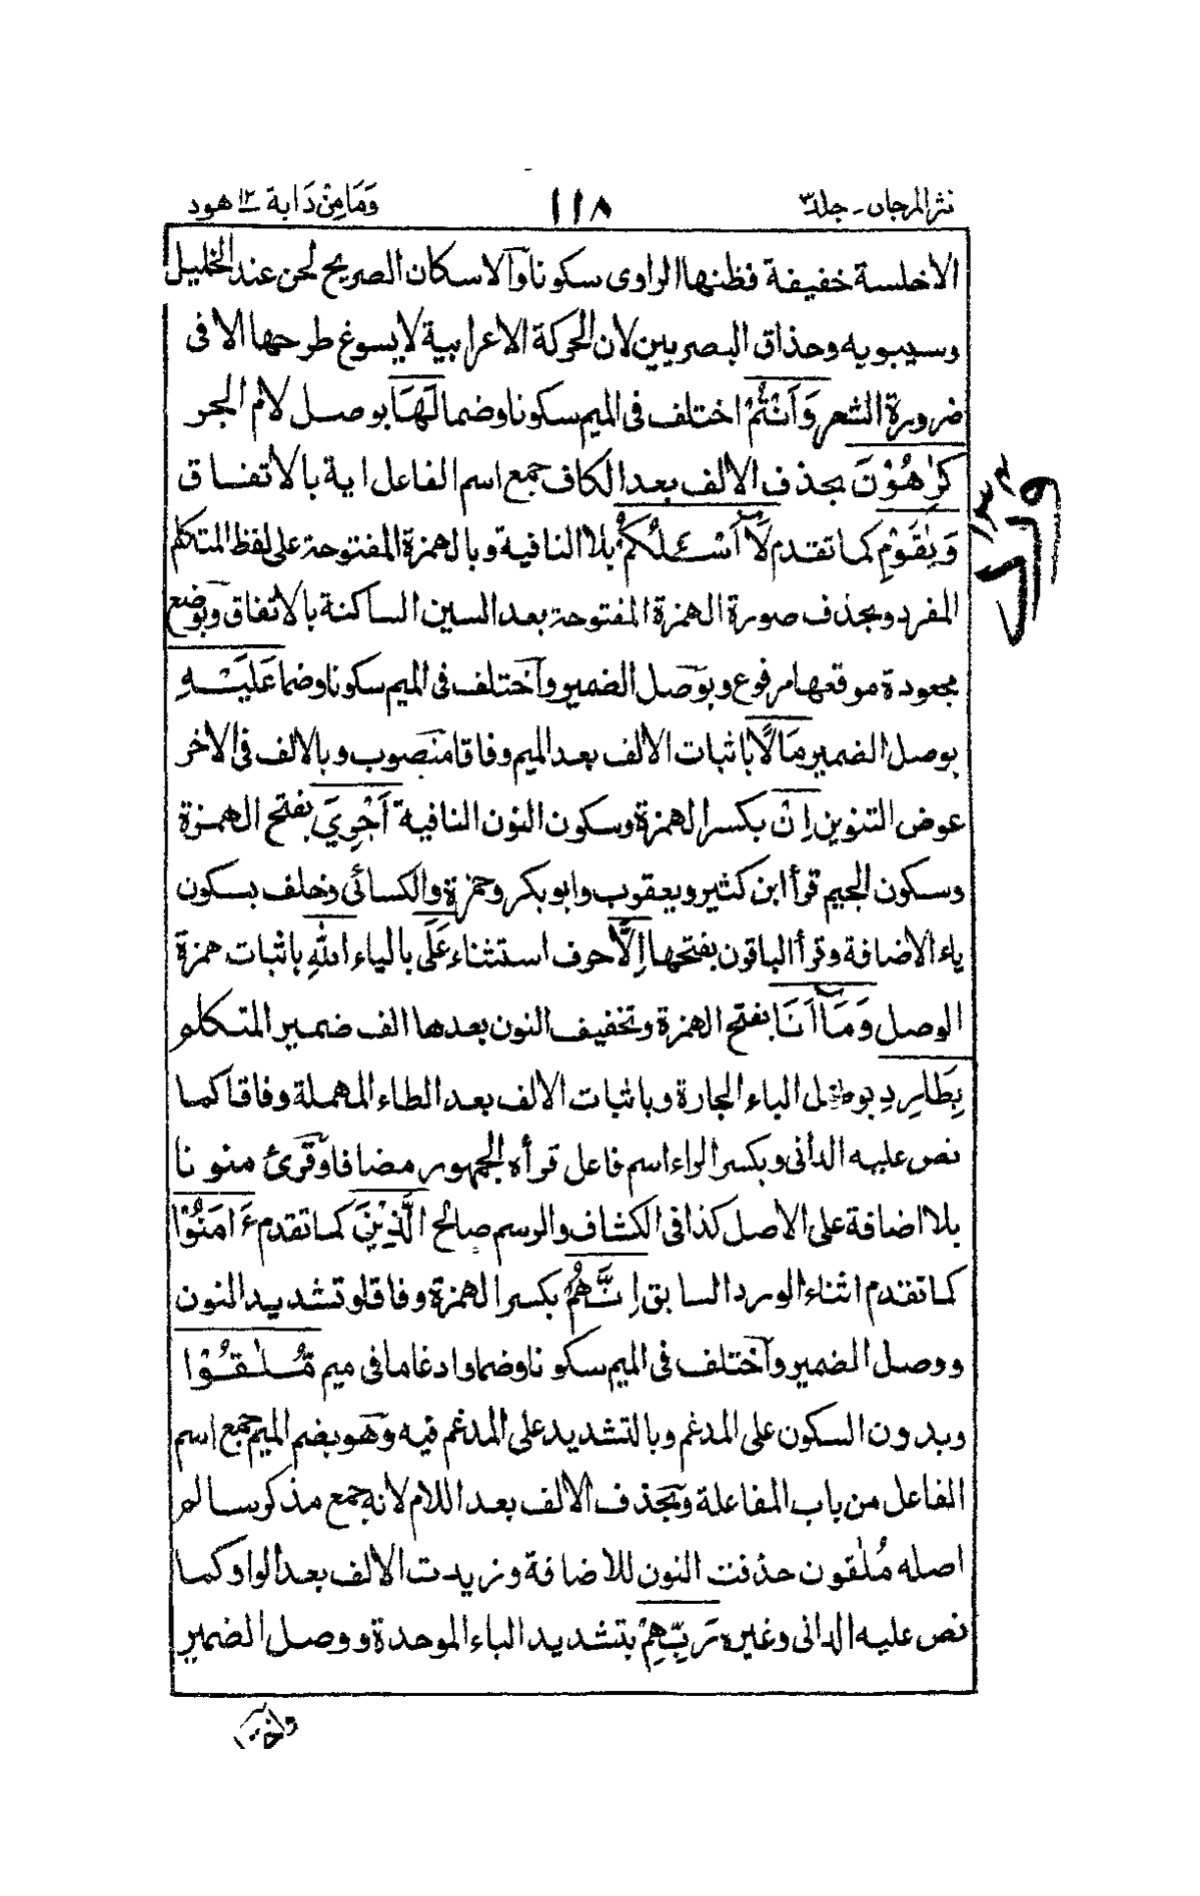 نثر المرجان - جلد ٣
١١٨
وَمَا مِنْ دَابة ١٢ هود
الاخلسة خفيفة فظنها الراوى سكونا وآلاسكان الصريح لحن عند الخليل
وسيبويه وحذاق البصريين لان الحركة الاعرابية لا يسوغ طرحها الا فى
ضرورة الشعر وَاَنْتُمْ اختلف فى الميم سكونا وضما لَهَا بوصل لام الجر
كٰرِهُوْنَ بحذف الالف بعد الكاف جمع اسم الفاعل اية بالاتفاق
وَيٰقَوْمِ كما تقدم لَآ اَسْـَٔلُكُمْ بلا النافية وبالهمزة المفتوحة على لفظ المتكلم
المفرد وبحذف صورة الهمزة المفتوحة بعد السين الساكنة بالاتفاق وبوضع
مجعودة موقعها مرفوع وبوصل الضمير وآختلف فى الميم سكونا وضما عَلَيْهِ
بوصل الضمير مَالًا باثبات الالف بعد الميم وفاقا منصوب وبالالف فى الاخر
عوض التنوين اِنْ بكسر الهمزة وسكون النون النافية اَجْرِيَ بفتح الهمزة
وسكون الجيم قرأ ابن كثير ويعقوب وابو بكر وحمزة والكسائى وخلف بسكون
ياء الاضافة وقرأ الباقون بفتحها اِلَّا حرف استثناء عَلَى بالياء اللهِ باثبات همزة
الوصل وَمَآ اَنَا بفتح الهمزة وتخفيف النون بعدها الف ضمير المتكلم
بِطَارِدِ بوصل الباء الجارة وباثبات الالف بعد الطاء المهملة وفاقا كما
نص عليه الدانى وبكسر الراء اسم فاعل قرأه الجمهور مضافا وقرئ منونا
بلا اضافة على الاصل كذا فى الكشاف والرسم صالح الَّذِيْنَ كما تقدم ءَامَنُوْا
كما تقدم اثناء الورد السابق اِنَّهُمْ بكسر الهمزة وفاقا وتشديد النون
ووصل الضمير وآختلف فى الميم سكونا وضما وادغاما فى ميم مُّلٰقُوْا
وبدون السكون على المدغم وبالتشديد على المدغم فيه وهو بضم الميم جمع اسم
الفاعل من باب المفاعلة وبحذف الالف بعد اللام لانه جمع مذكر سالم
اصله مُلٰقون حذفت النون للاضافة وزيدت الالف بعد الواو كما
نص عليه الدانى وغيره رَبِّهِمْ بتشديد الباء الموحدة ووصل الضمير